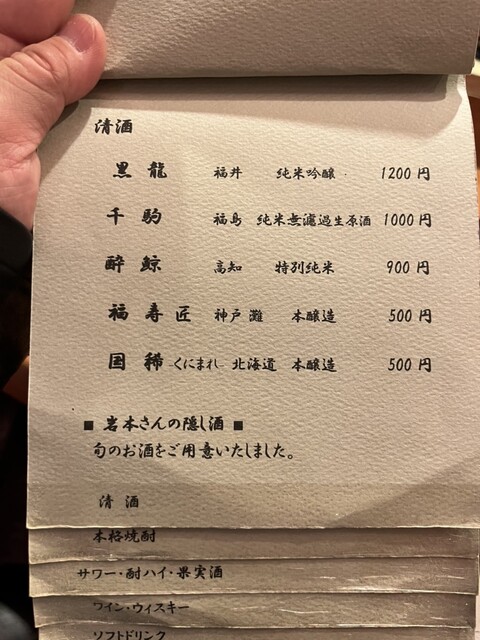 清酒
黒龍 福井 純米吟醸 1200円
千駒 福島 純米無濾過生原酒 1000円
酔鯨 高知 特別純米 900円
福寿匠 神戸灘 本醸造 500円
国稀 くにまれ 北海道 本醸造 500円
■ 岩本さんの隠し酒 ■
旬のお酒をご用意いたしました。
清酒
本格焼酎
サワー・酎ハイ・果実酒
ワイン・ウィスキー
ソフトドリンク